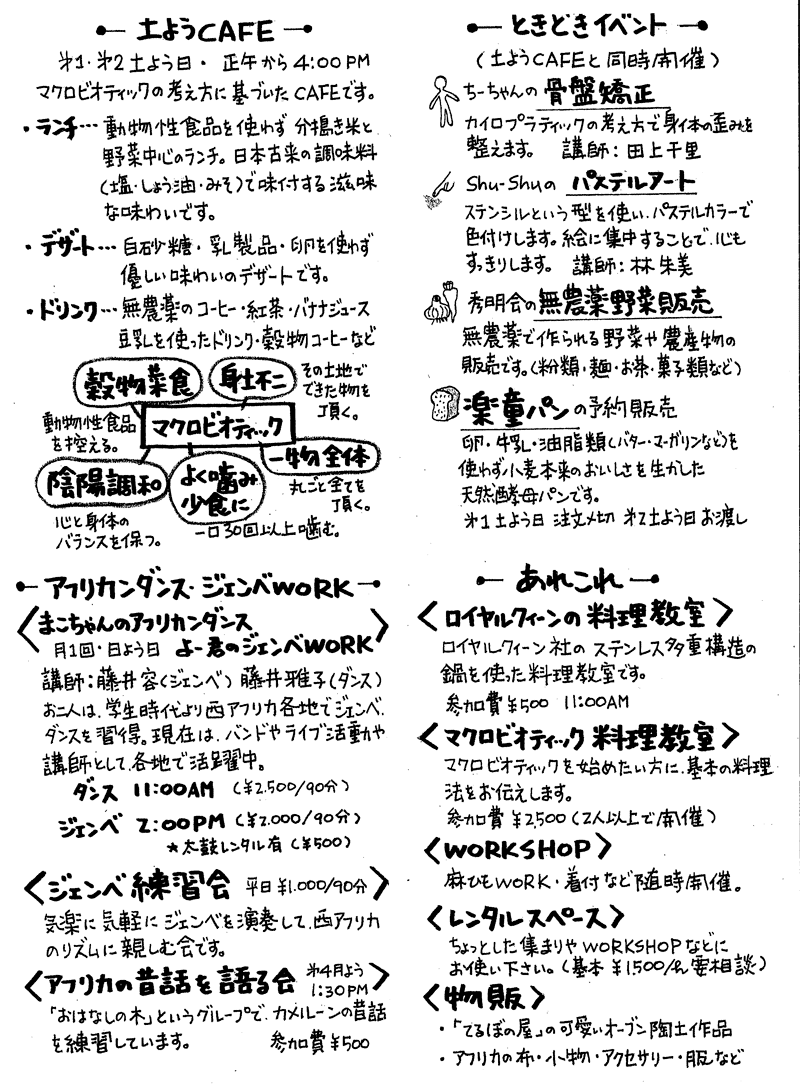 土ようCAFE
第1・第2土よう日・正午から4:00PM
マクロビオティックの考え方に基づいたCAFEです。
・ランチ…動物性食品を使わず分搗き米と
野菜中心のランチ。日本古来の調味料
(塩・しょう油・みそ)で味付する滋味
な味わいです。
・デザート…白砂糖・乳製品・卵を使わず
優しい味わいのデザートです。
・ドリンク…無農薬のコーヒー・紅茶・バナナジュース
豆乳を使ったドリンク・穀物コーヒーなど
穀物菜食
身土不二
その土地で
できた物を
頂く。
動物性食品
を控える。
マクロビオティック
一物全体
丸ごと全てを
頂く。
陰陽調和
心と身体の
バランスを保つ。
よく噛み
少食に
一口30回以上噛む。
アフリカンダンス・ジェンベWORK
〈まこちゃんのアフリカンダンス
月1回・日よう日 よー君のジェンベWORK〉
講師:藤井容(ジェンベ) 藤井雅子(ダンス)
お二人は、学生時代より西アフリカ各地でジェンベ、
ダンスを習得。現在は、バンドやライブ活動や
講師として、各地で活躍中。
ダンス 11:00AM (¥2,500/90分)
ジェンベ 2:00PM (¥2,000/90分)
★太鼓レンタル有(¥500)
〈ジェンベ練習会 平日¥1,000/90分〉
気楽に気軽にジェンベを演奏して、西アフリカ
のリズムに親しむ会です。
〈アフリカの昔話を語る会 第4月よう
1:30PM〉
「おはなしの木」というグループで、カメルーンの昔話
を練習しています。 参加費¥500
ときどきイベント
(土ようCAFEと同時開催)
ちーちゃんの骨盤矯正
カイロプラティックの考え方で身体の歪みを
整えます。 講師:田上千里
Shu-Shuの パステルアート
ステンシルという型を使い、パステルカラーで
色付けします。絵に集中することで、心も
すっきりします。 講師:林朱美
秀明会の無農薬野菜販売
無農薬で作られる野菜や農産物の
販売です。(粉類・麺・お茶・菓子類など)
楽童パンの予約販売
卵・牛乳・油脂類(バター・マーガリンなど)を
使わず小麦本来のおいしさを生かした
天然酵母パンです。
第1土よう日 注文〆切 第2土よう日 お渡し
あれこれ
〈ロイヤルクィーンの料理教室〉
ロイヤルクィーン社のステンレス多重構造の
鍋を使った料理教室です。
参加費¥500 11:00AM
〈マクロビオティック料理教室〉
マクロビオティックを始めたい方に、基本の料理
法をお伝えします。
参加費¥2,500(2人以上で開催)
〈WORKSHOP〉
麻ひもWORK・着付など随時開催。
〈レンタルスペース〉
ちょっとした集まりやWORKSHOPなどに
お使い下さい。(基本 ¥1500/h 要相談)
〈物販〉
・「てるぼの屋」の可愛いオーブン陶土作品
・アフリカの布・小物・アクセサリー・服など